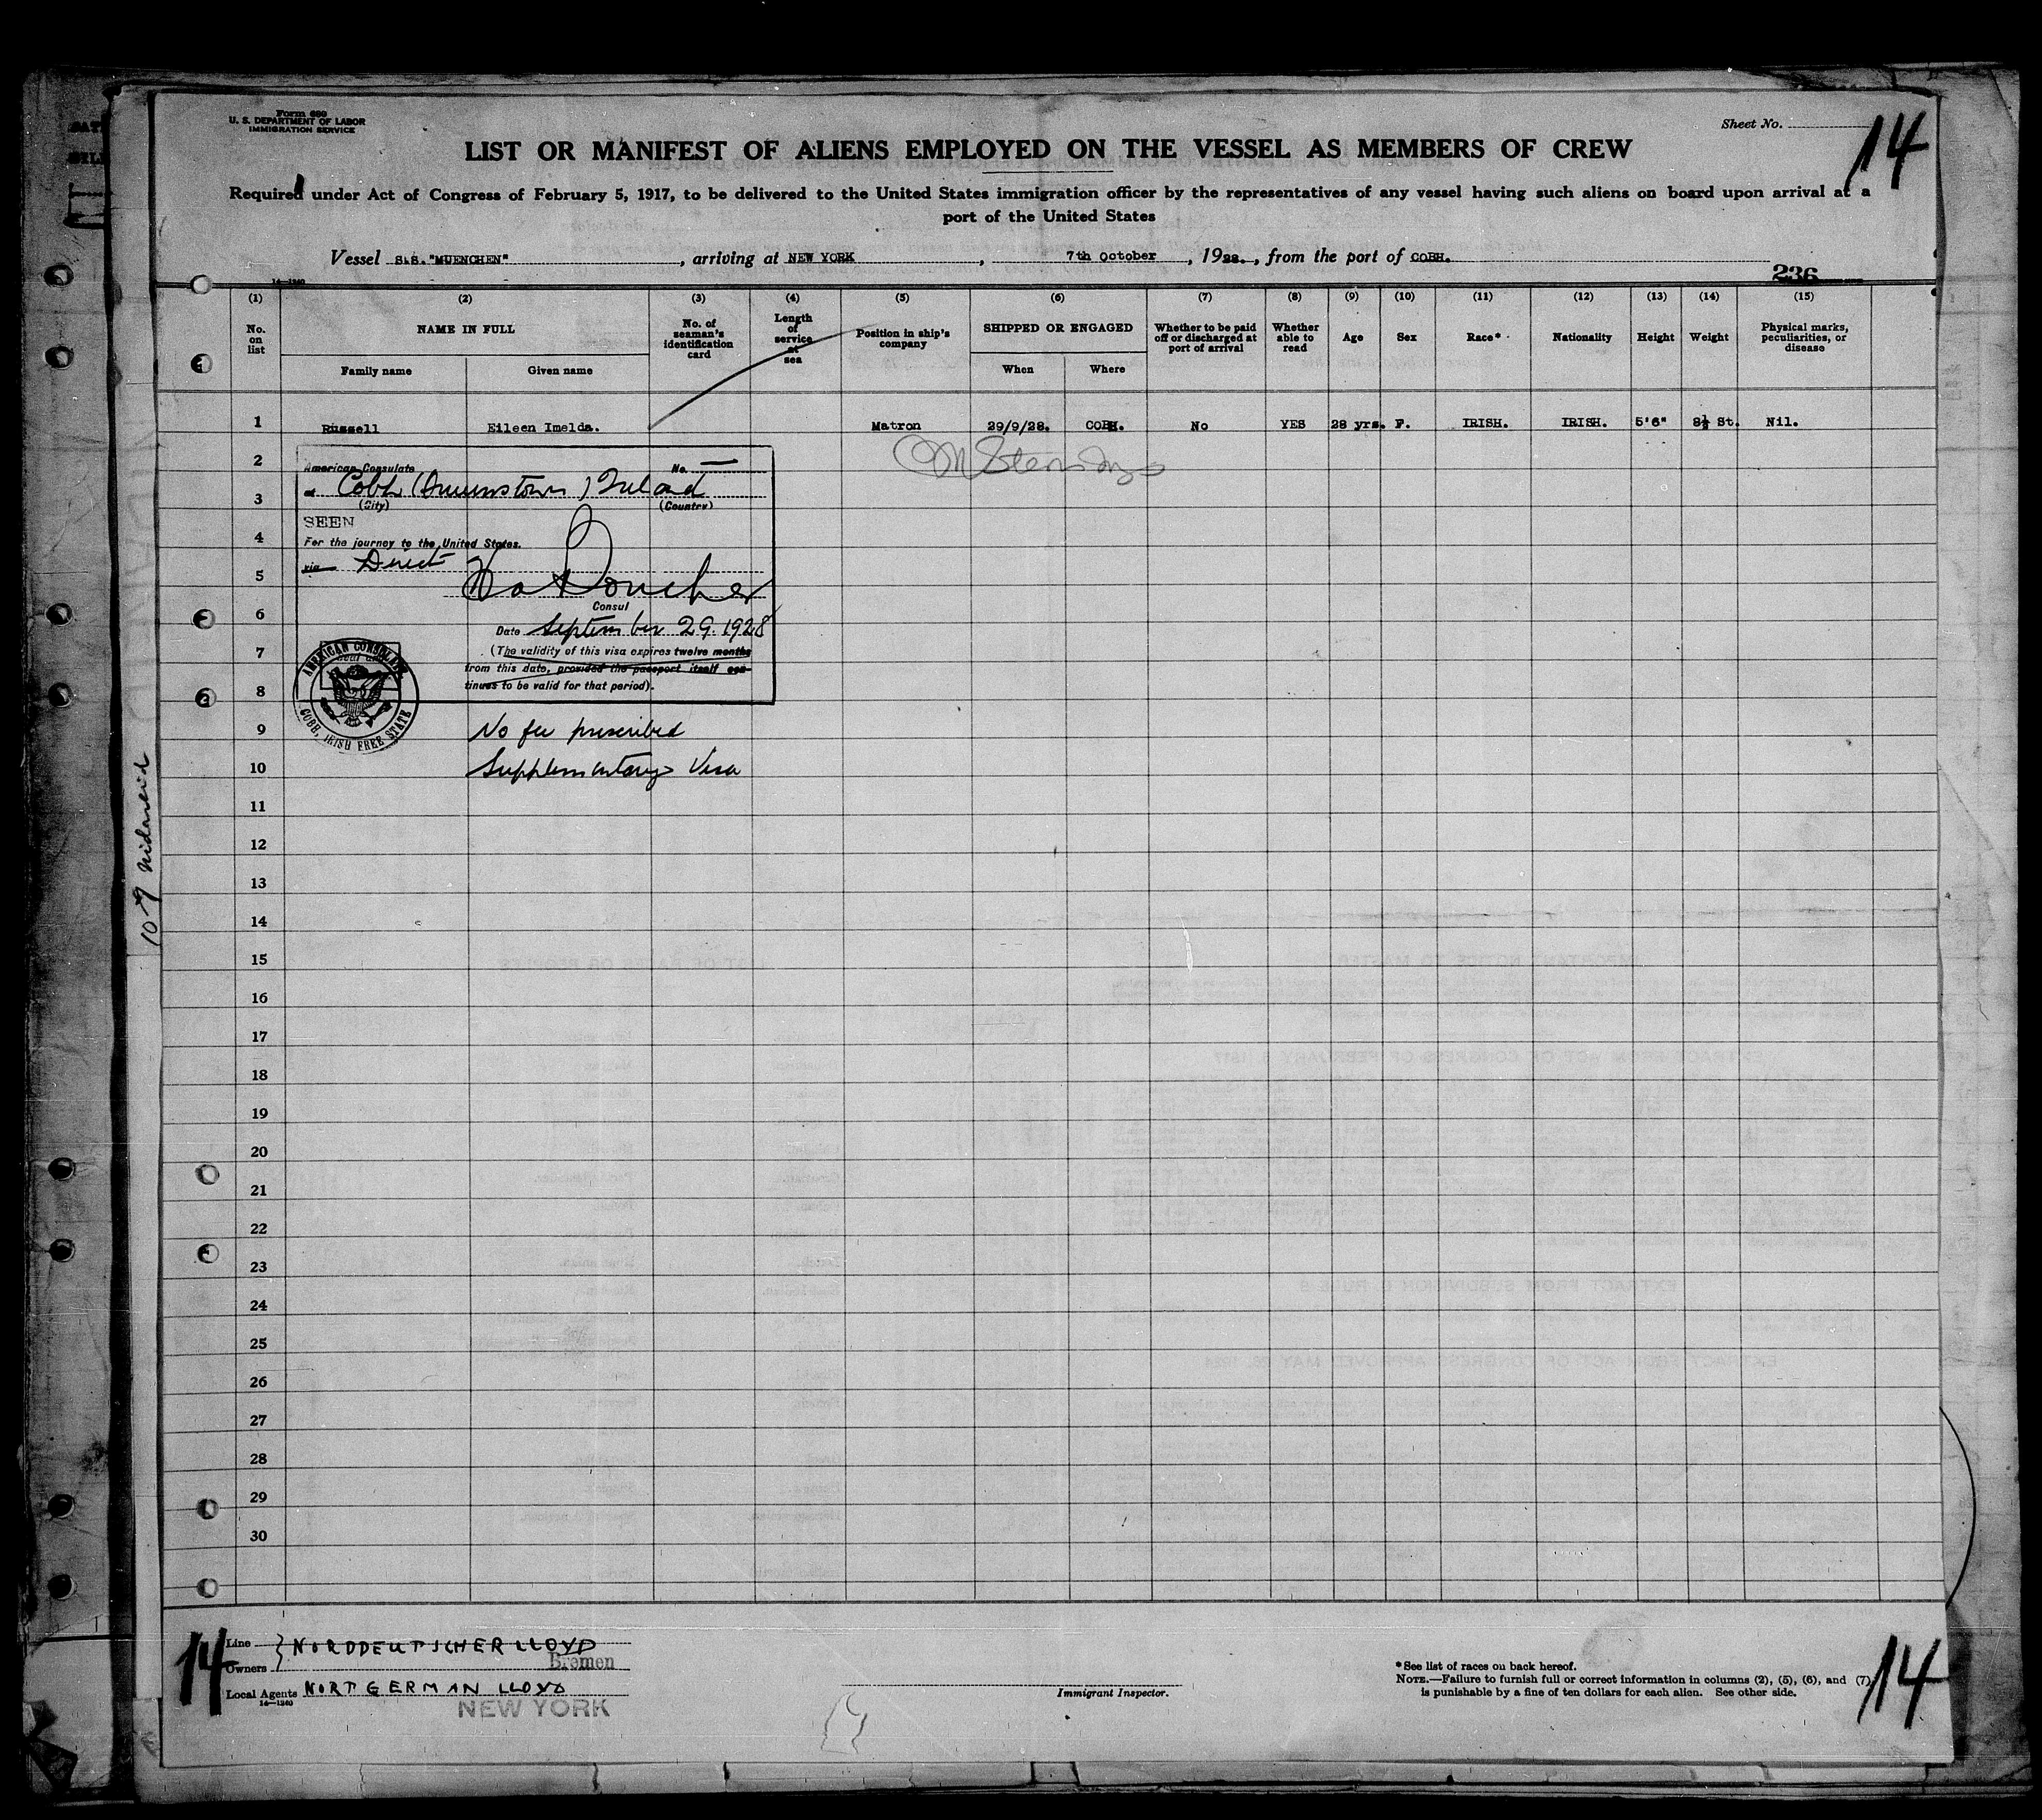 Form 680
U. S. DEPARTMENT OF LABOR
IMMIGRATION SERVICE
Sheet No. 14
LIST OR MANIFEST OF ALIENS EMPLOYED ON THE VESSEL AS MEMBERS OF CREW
Required under Act of Congress of February 5, 1917, to be delivered to the United States immigration officer by the representatives of any vessel having such aliens on board upon arrival at a
port of the United States
Vessel S.S. "MUENCHEN", arriving at NEW YORK, 7th October, 1928., from the port of COBH.
14—1240
236
(1) (2) (3) (4) (5) (6) (7) (8) (9) (10) (11) (12) (13) (14) (15)
No. on list NAME IN FULL No. of seaman's identification card Length of service at sea Position in ship's company SHIPPED OR ENGAGED Whether to be paid off or discharged at port of arrival Whether able to read Age Sex Race* Nationality Height Weight Physical marks, peculiarities, or disease
Family name Given name When Where
1 Russell Eileen Imelda. Matron 29/9/28. COBH. No YES 28 yrs. F. IRISH. IRISH. 5'6" 8½ St. Nil.
2
American Consulate No. —
3
at Cobh (Queenstown) Ireland
(City) (Country)
SEEN
4
For the journey to the United States.
via Direct
5
Consul
6
Date September 29. 1928
7
(The validity of this visa expires twelve months
from this date, provided the passport itself con-
8
tinues to be valid for that period).
AMERICAN CONSULATE
COBH, IRISH FREE STATE
9 No fee prescribed
10 Supplementary Visa
11
12
13
14
15
16
17
18
19
20
21
22
23
24
25
26
27
28
29
30
14
Line NORDDEUTSCHER LLOYD
Owners Bremen
Local Agents NORT GERMAN LLOYD
14—1240
NEW YORK
Immigrant Inspector.
*See list of races on back hereof.
NOTE.—Failure to furnish full or correct information in columns (2), (5), (6), and (7)
is punishable by a fine of ten dollars for each alien. See other side.
14